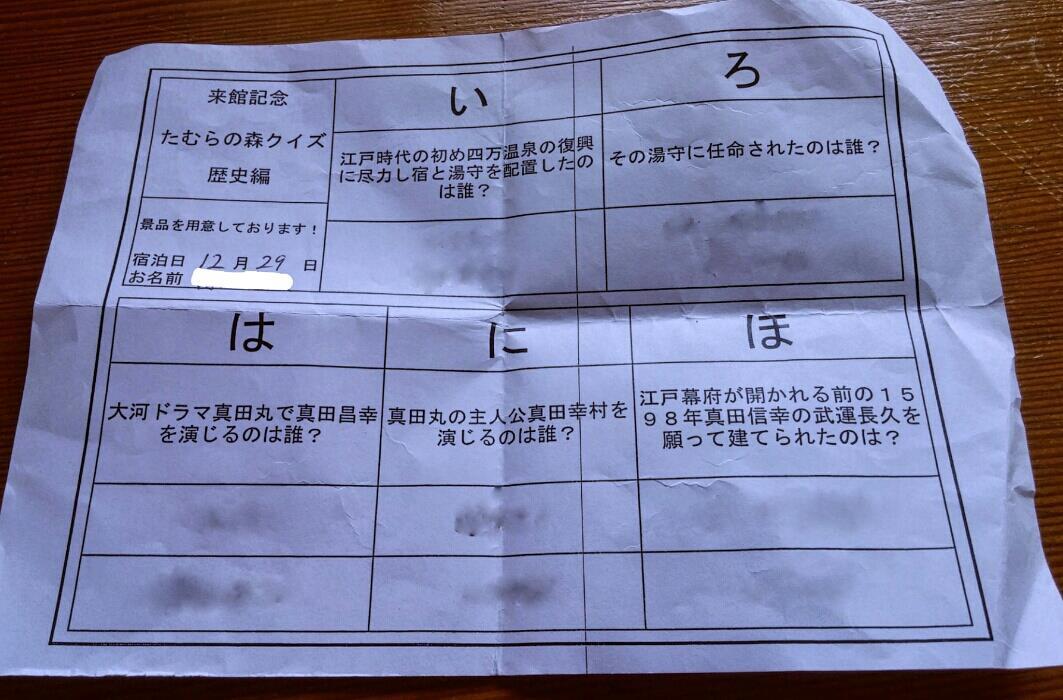 来館記念
たむらの森クイズ
歴史編
景品を用意しております！
宿泊日 12月29日
お名前
い
江戸時代の初め四万温泉の復興
に尽力し宿と湯守を配置したの
は誰？
ろ
その湯守に任命されたのは誰？
は
大河ドラマ真田丸で真田昌幸
を演じるのは誰？
に
真田丸の主人公真田幸村を
演じるのは誰？
ほ
江戸幕府が開かれる前の１５
９８年真田信幸の武運長久を
願って建てられたのは？